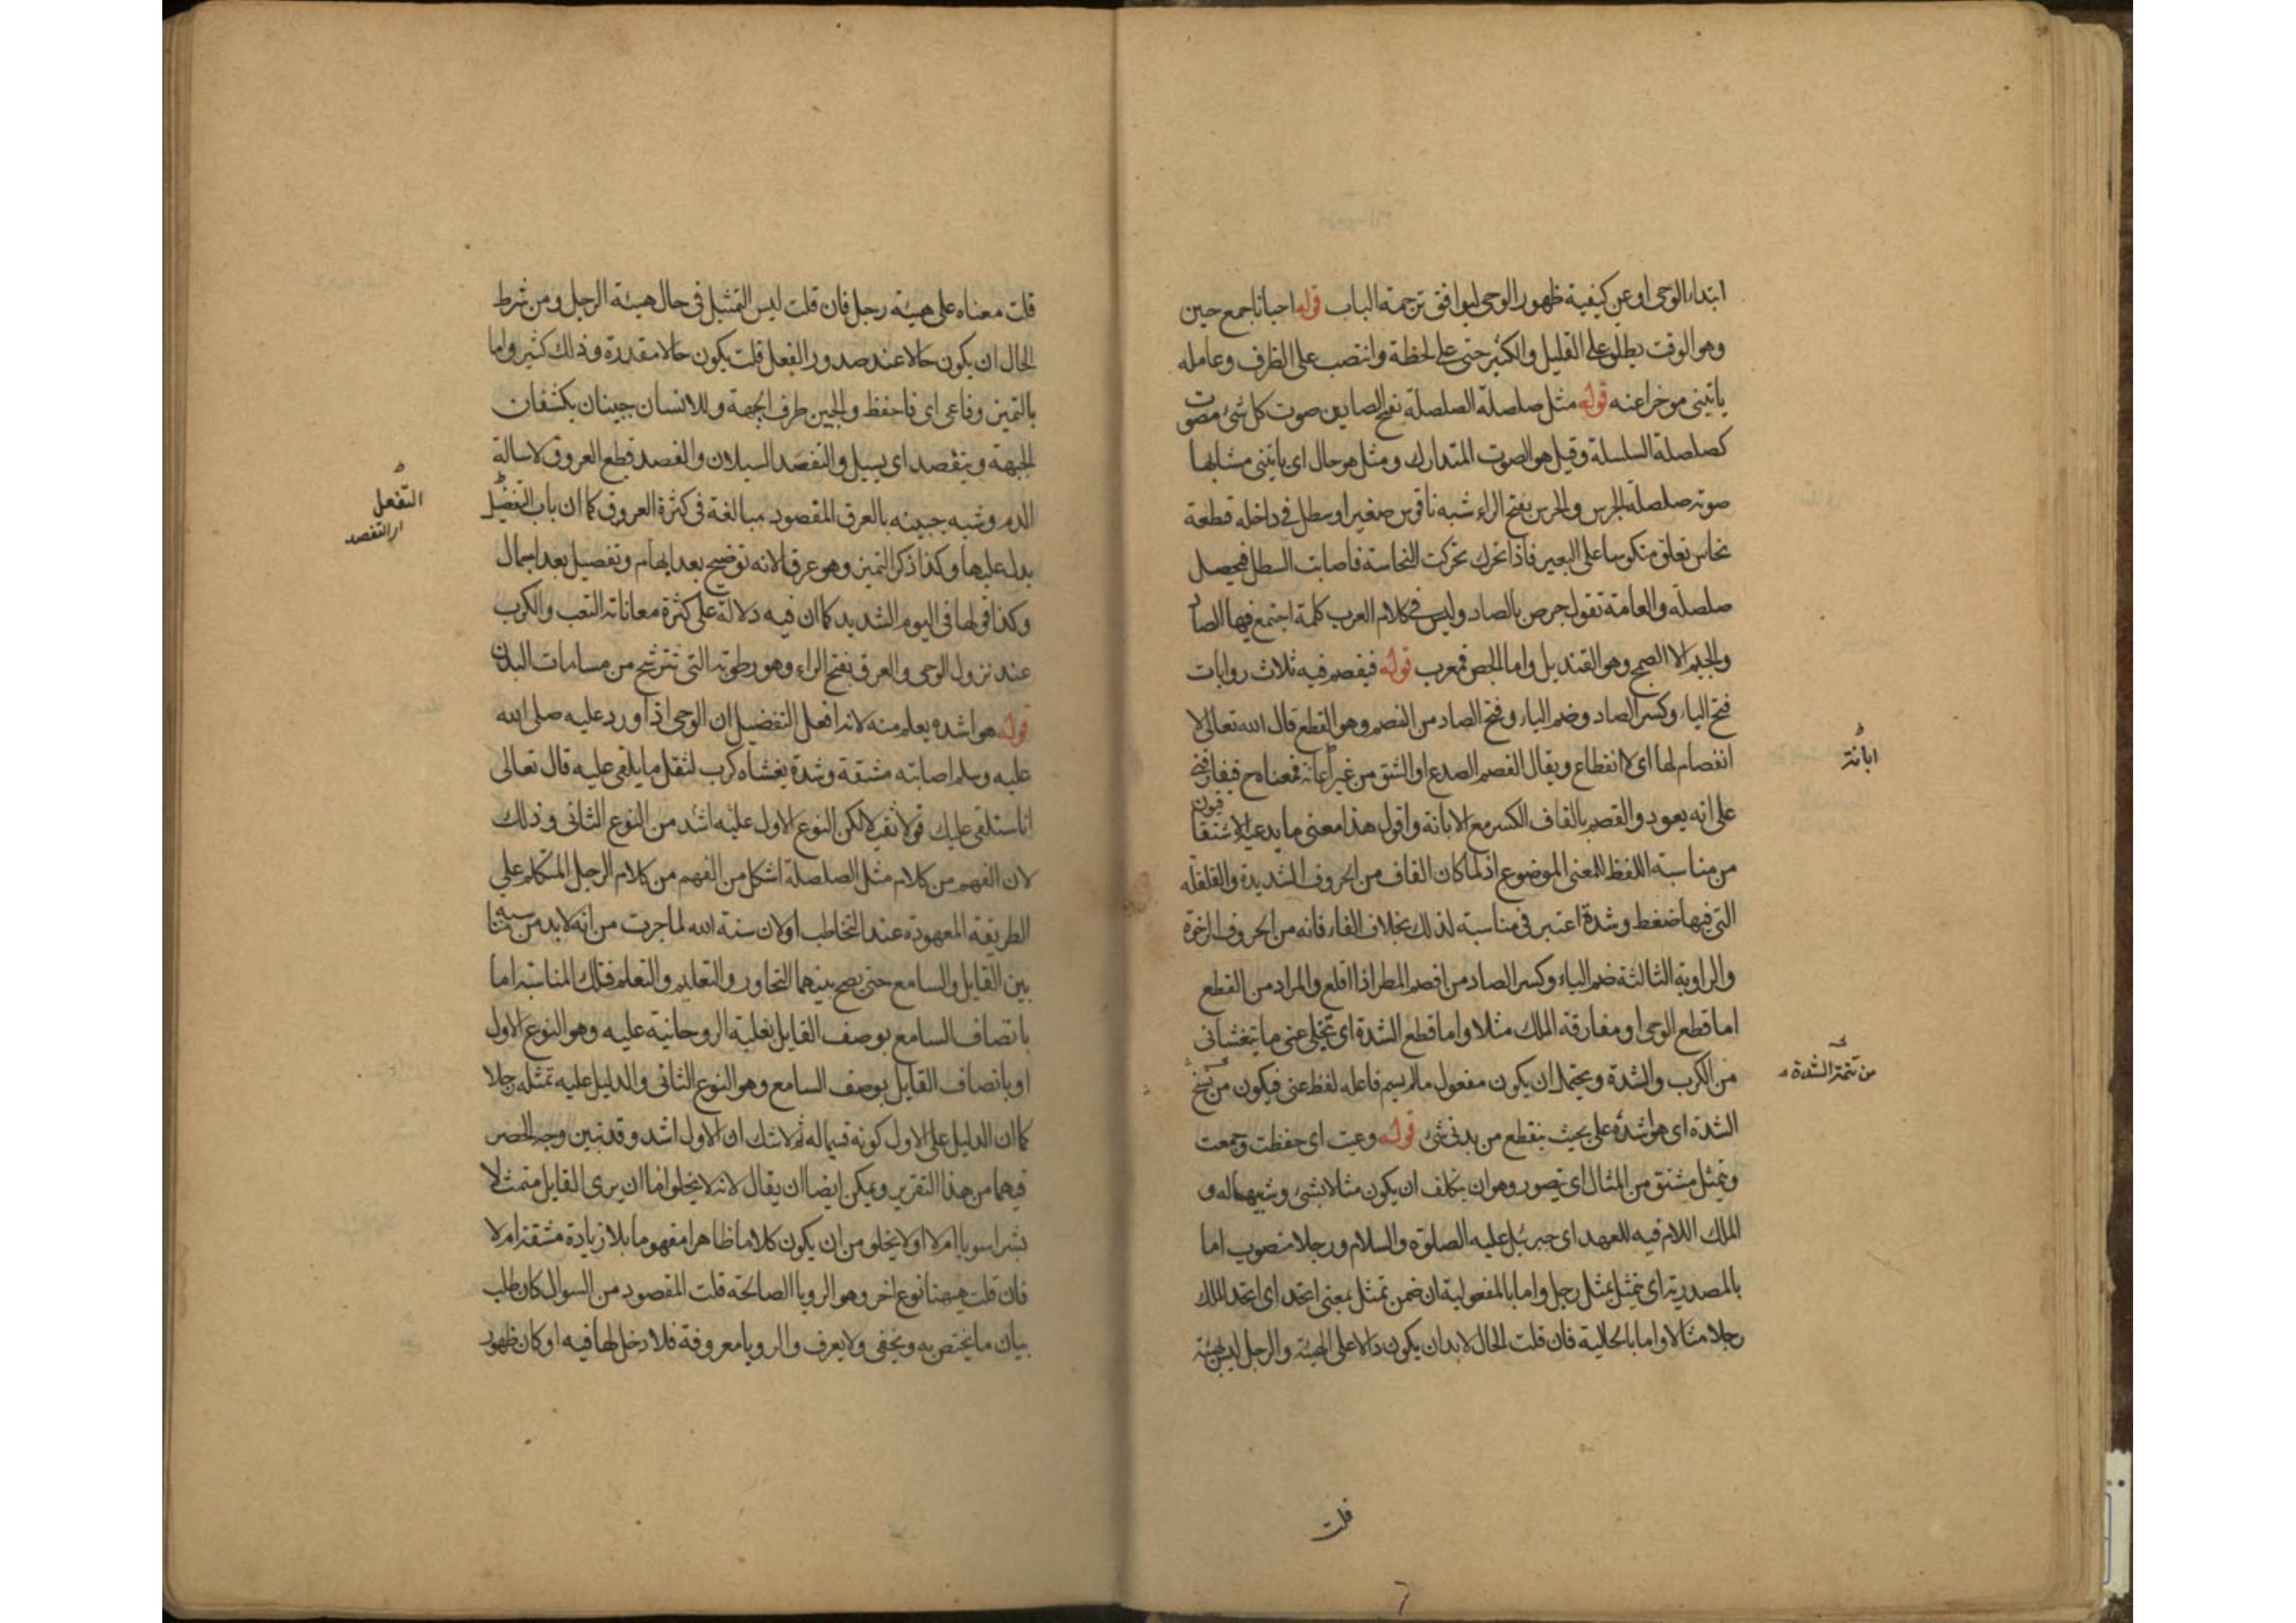 ابتداء الوحى او عن كيفية ظهور الوحى ليوافق ترجمة الباب قوله احيانا جمع حين
وهو الوقت يطلق على القليل والكثير حتى على لحظة وانتصب على الظرف وعامله
ياتينى موخرا عنه قوله مثل صلصلة الصلصلة بفتح الصادين صوت كل شئ مصوت
كصلصلة السلسلة وقيل هو الصوت المتدارك ومثل هو حال اى ياتينى مشابها
صوته صلصلة الجرس والجرس بفتح الراء شبه ناقوس صغير او سطل فى داخله قطعة
نحاس تعلق منكوسا على البعير فاذا تحرك تحركت النحاسة فاصابت السطل فيحصل
صلصلة والعامة تقول جرص بالصاد وليس فى كلام العرب كلمة اجتمع فيها الصاد
والجيم الا الصمج وهو القنديل واما الجص فمعرب قوله فيفصم فيه ثلاث روايات
فتح الياء وكسر الصاد وضم الياء وفتح الصاد من الفصم وهو القطع قال الله تعالى لا
انفصام لها اى لا انقطاع ويقال الفصم الصدع او الشق من غير اعانة فمعناه ح فيفارقنى
ابانة
على انه يعود والقصم بالقاف الكسر مع الابانة واقول هذا معنى ما يدعيه الاشتقاقيون
من مناسبة اللفظ للمعنى الموضوع اذ لما كان القاف من الحروف الشديدة والقلقلة
التى فيها ضغط وشدة اعتبر فى مناسبة لذلك بخلاف الفاء فانه من الحروف الرخوة
والراوية الثالثة ضم الياء وكسر الصاد من افصم المطر اذا اقلع والمراد من القطع
اما قطع الوحى او مفارقة الملك مثلا واما قطع الشدة اى تجلى عنى ما يتغشانى
من الكرب والشدة ويحتمل ان يكون مفعول ما لم يسم فاعله لفظ عنى فيكون من
من تتمة الشدة
الشدة اى هو اشده على بحيث ينقطع من بدنى شئ قوله وعيت اى حفظت وجمعت
وتمثل مشتق من المثال اى تصور وهو ان يتكلف ان يكون مثالا لشئ وشبيها له و
الملك اللام فيه للعهد اى جبرئيل عليه الصلوة والسلام ورجلا منصوب اما
بالمصدرية اى تمثل تمثل رجل واما بالمفعولية ان ضمن تمثل بمعنى اتخذ اى اتخذ الملك
رجلا مثالا واما بالحالية فان قلت الحال لا بد ان يكون دالا على الهيئة والرجل ليس بهيئة
قلت
قلت معناه على هيئة رجل فان قلت ليس التمثيل فى حال هيئة الرجل ومن شرط
الحال ان يكون حالا عند صدور الفعل قلت يكون حالا مقدرة وذلك كثير واما
بالتميز وفاعى اى فاحفظ والجبين طرف الجبهة وللانسان جبينان يكتنفان
الجبهة ويتفصد اى يسيل والتفصد السيلان والفصد قطع العروق لاسالة
الدم وشبه جبينه بالعرق المقصود مبالغة فى كثرة العروق كما ان باب التفضيل
التفعل
او التفصد
يدل عليها وكذا ذكر التميز وهو عرقا لانه توضيح بعد ابهام وتفصيل بعد اجمال
وكذا قولها فى اليوم الشديد كما ان فيه دلالة على كثرة معاناته التعب والكرب
عند نزول الوحى والعرق بفتح الراء وهو رطوبته التى تترشح من مسامات البدن
قوله هو اشده يعلم منه لانه افعل التفضيل ان الوحى اذا ورد عليه صلى الله
عليه وسلم اصابته مشقة وشدة يغشاه كرب لثقل ما يلقى عليه قال تعالى
انا سنلقى عليك قولا ثقيلا لكن النوع الاول عليه اشد من النوع الثانى وذلك
لان الفهم من كلام مثل الصلصلة اشكل من الفهم من كلام الرجل المتكلم على
الطريقة المعهودة عند التخاطب او لان سنة الله لما جرت من انه لا بد من مناسبة
بين القايل والسامع حتى يصح بينهما التحاور والتعليم والتعلم فتلك المناسبة اما
باتصاف السامع بوصف القايل بغلبة الروحانية عليه وهو النوع الاول
او باتصاف القايل بوصف السامع وهو النوع الثانى والدليل عليه تمثله رجلا
كما ان الدليل على الاول كونه قسيما له ثم لا شك ان الاول اشد وقد تبين وجه الحصر
فيهما من هذا التقرير ويمكن ايضا ان يقال لانه لا يخلو اما ان يرى القايل متمثلا
بشرا سويا ام لا او لا يخلو من ان يكون كلاما ظاهرا مفهوما بلا زيادة مشقة ام لا
فان قلت ههنا نوع اخر وهو الرويا الصالحة قلت المقصود من السوال كان طلب
بيان ما يختص به ويخفى ولا يعرف والرويا معروفة فلا دخل لها فيه او كان ظهور